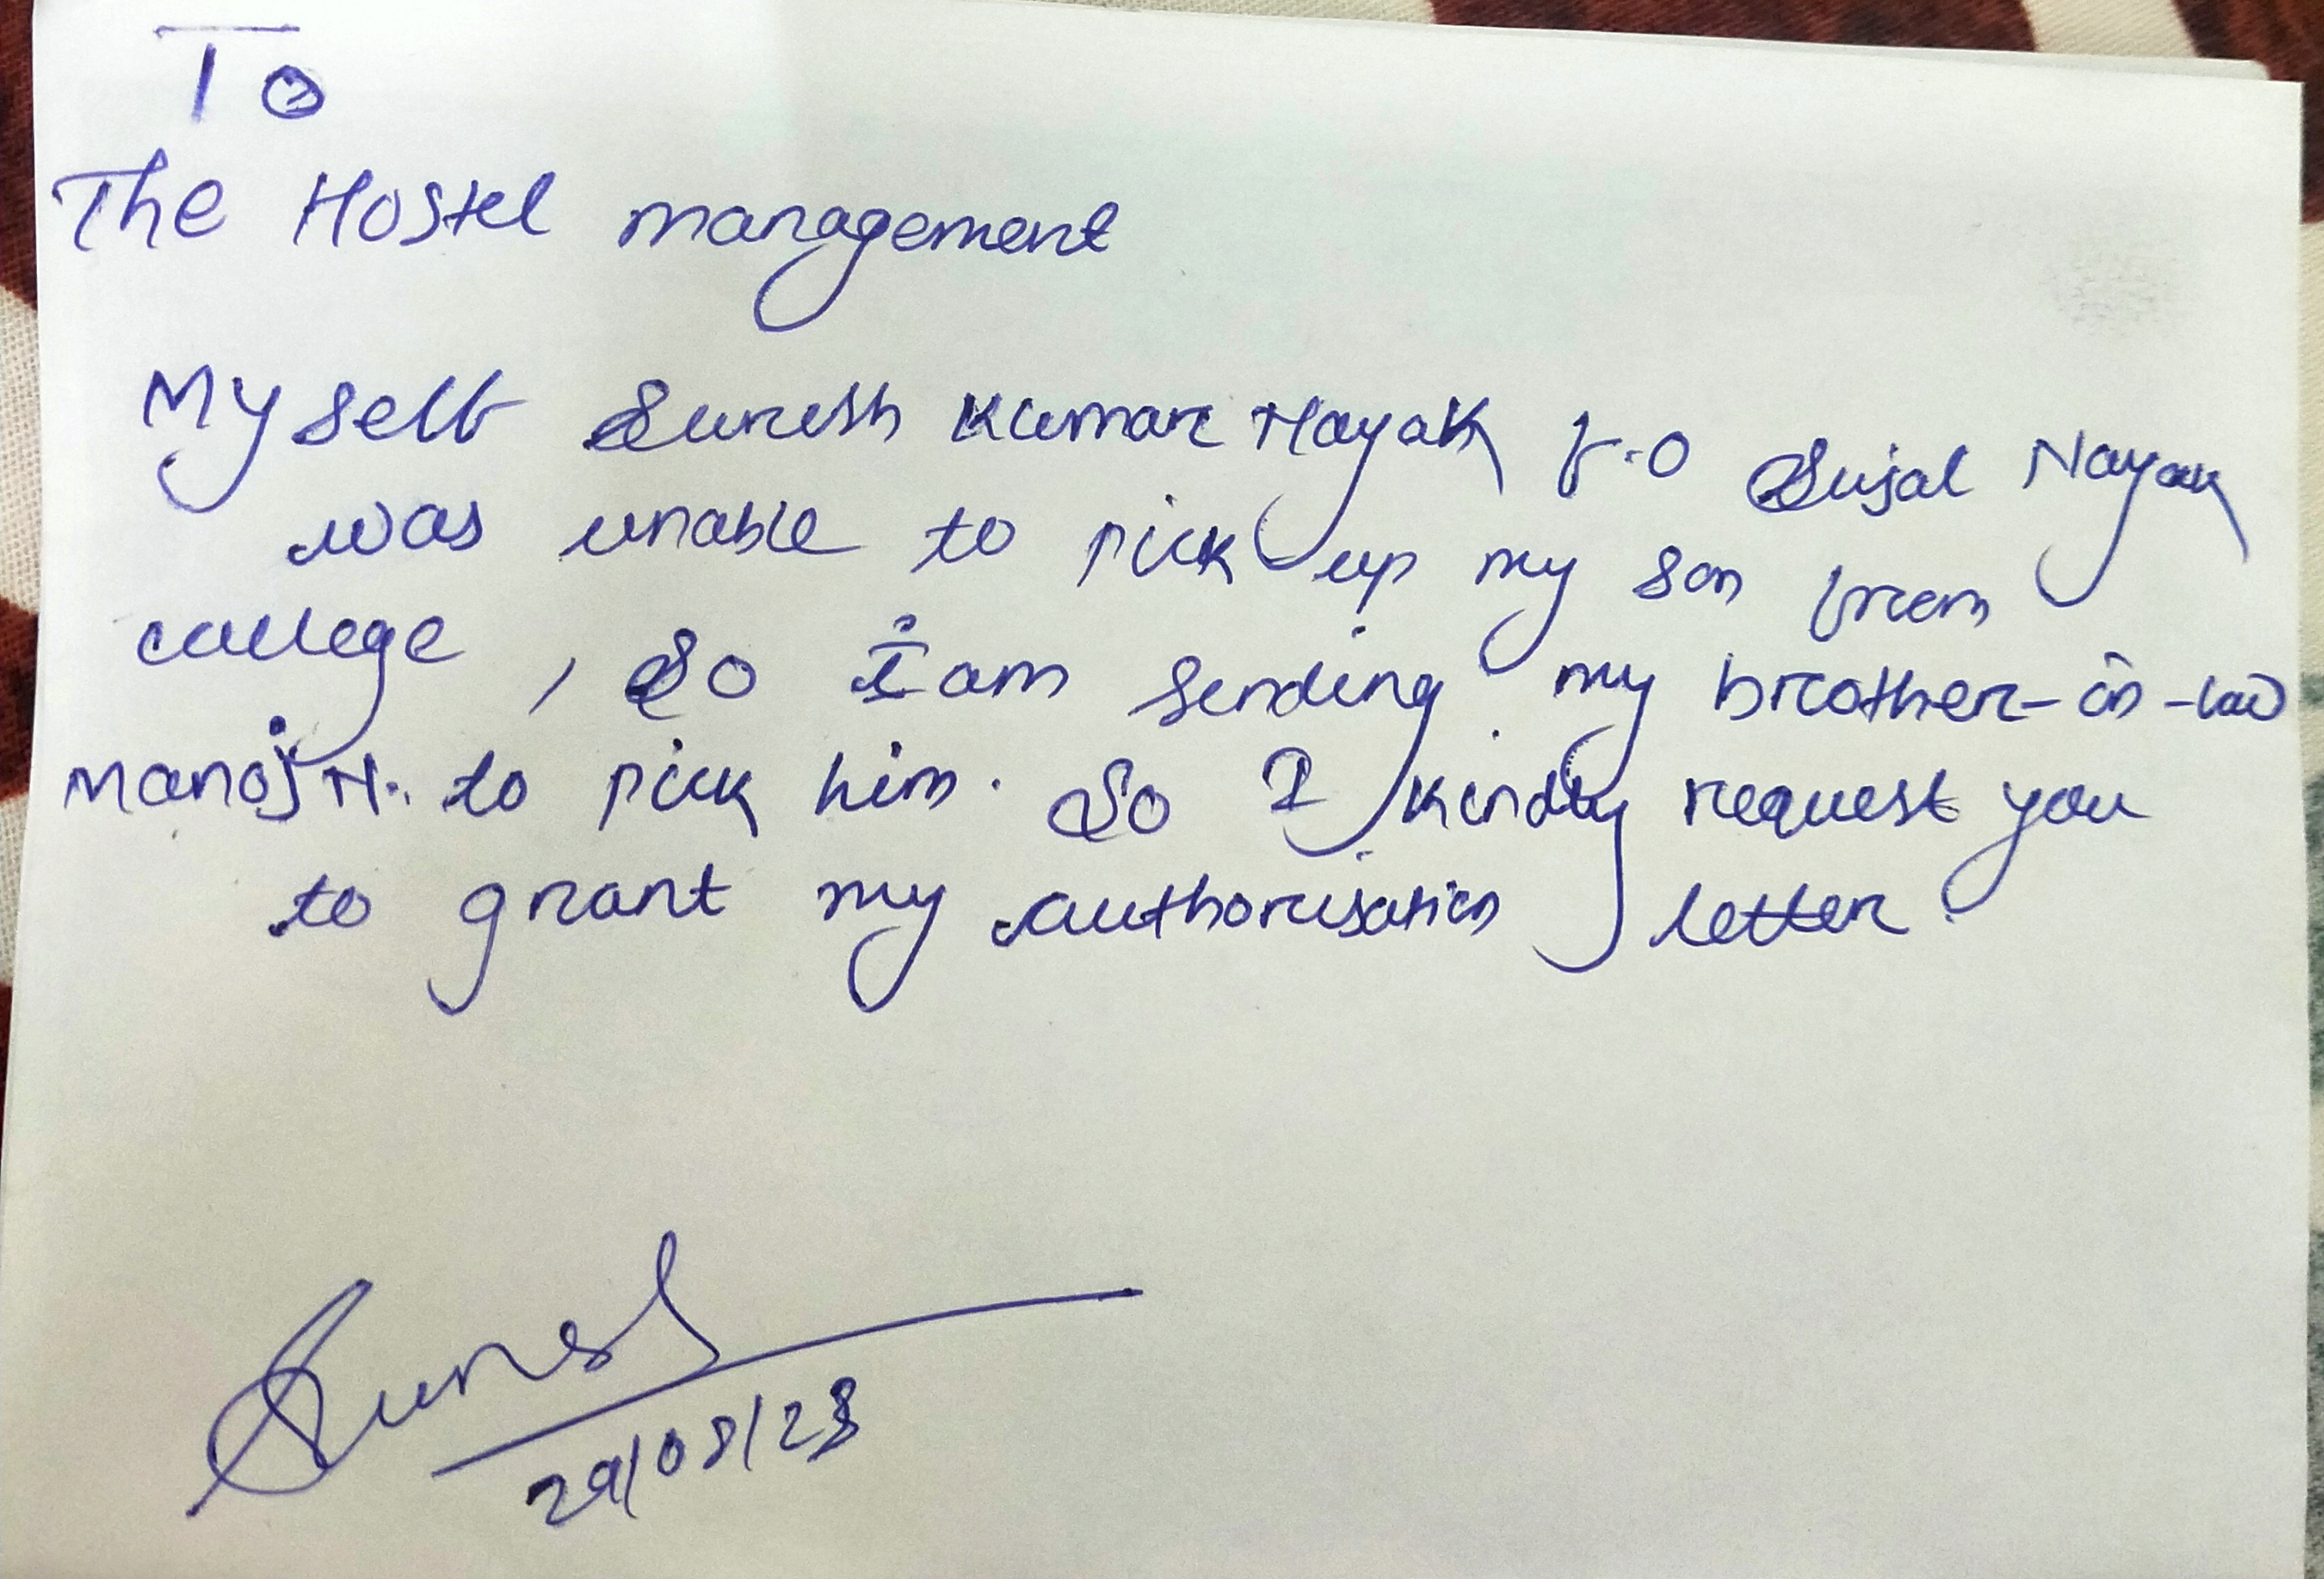 To
The Hostel management
Myself Suresh Kumar Nayak F.O Sujal Nayak
was unable to pick up my son from
college, So I am sending my brother-in-law
Manoj N. to pick him. So I kindly request you
to grant my authorisation letter.
Suresh
29/08/23